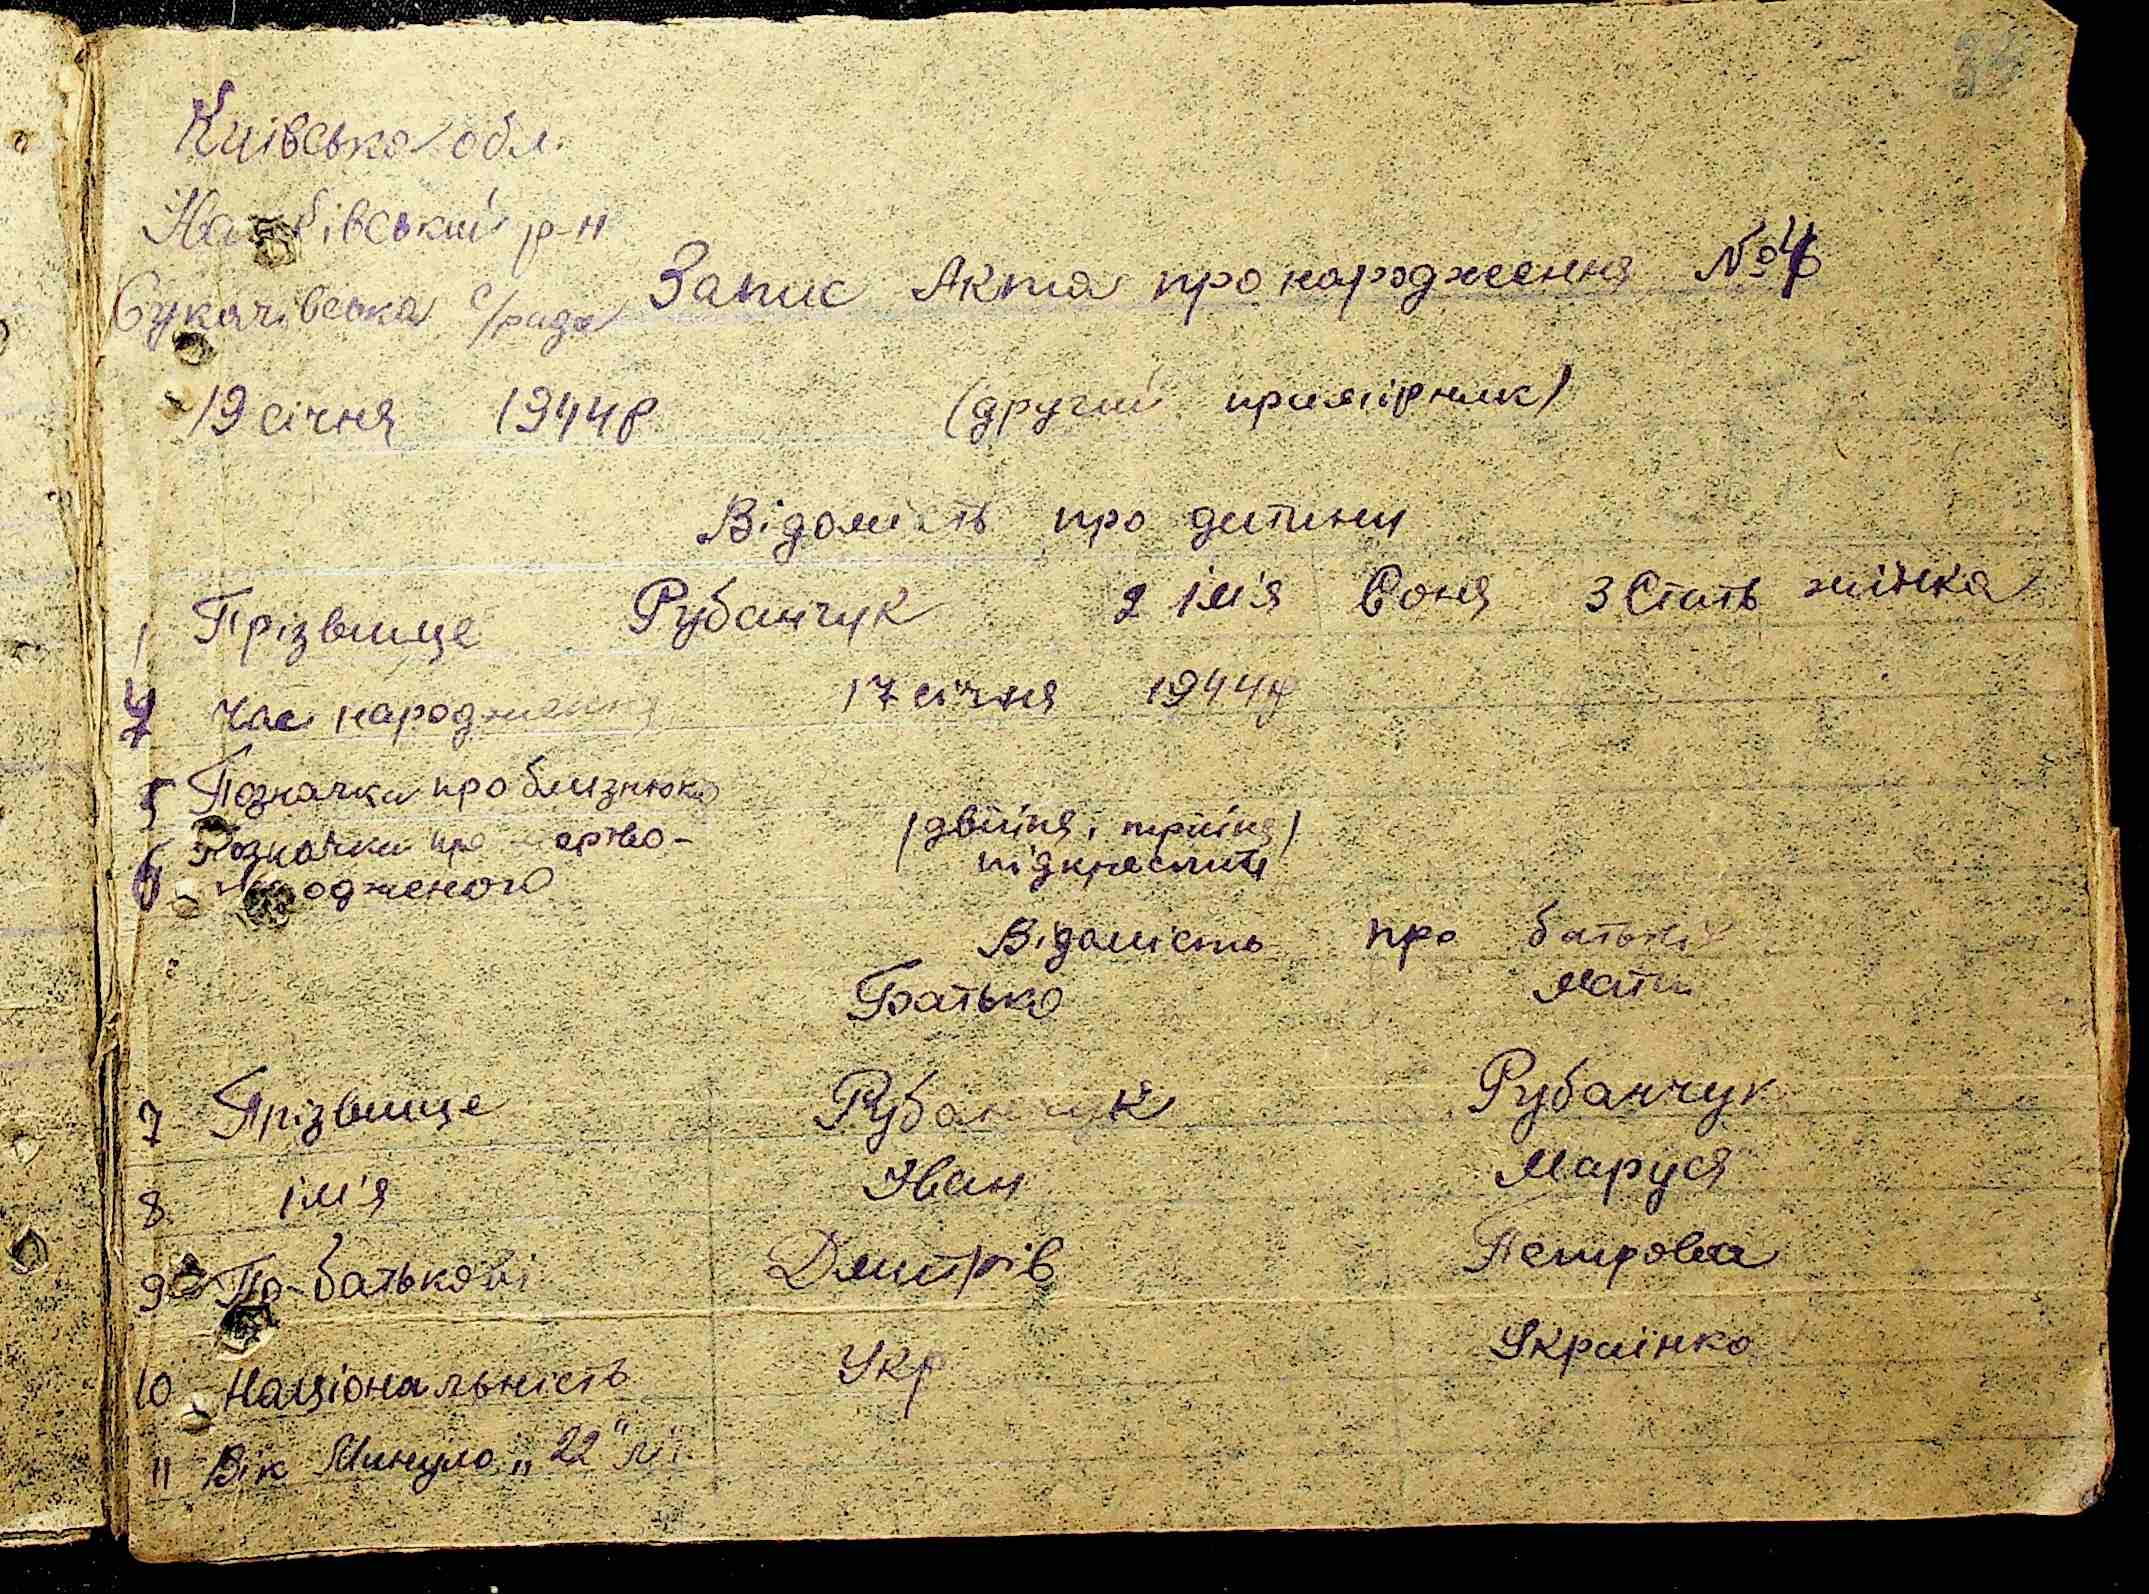 Київська обл.
р-н
Сукачівська с/рада Запис Акта про народження №
19 січня 1944р (другий примірник)
Відомість про дитину
1 Прізвище Рубанчук 2 ім'я Соня 3 Стать жінка
4 Час народження 17 січня 1944р
5 Позначка про близнюка
(двійня, трійня)
6 Позначка про мертво-
підкреслить
народженого
Відомість про батьків
Батько Мати
7 Прізвище Рубанчук Рубанчук
8 ім'я Іван Маруся
9 По-батькові Дмитрів Петровна
10 Національність Укр Українка
11 Вік Минуло „22"